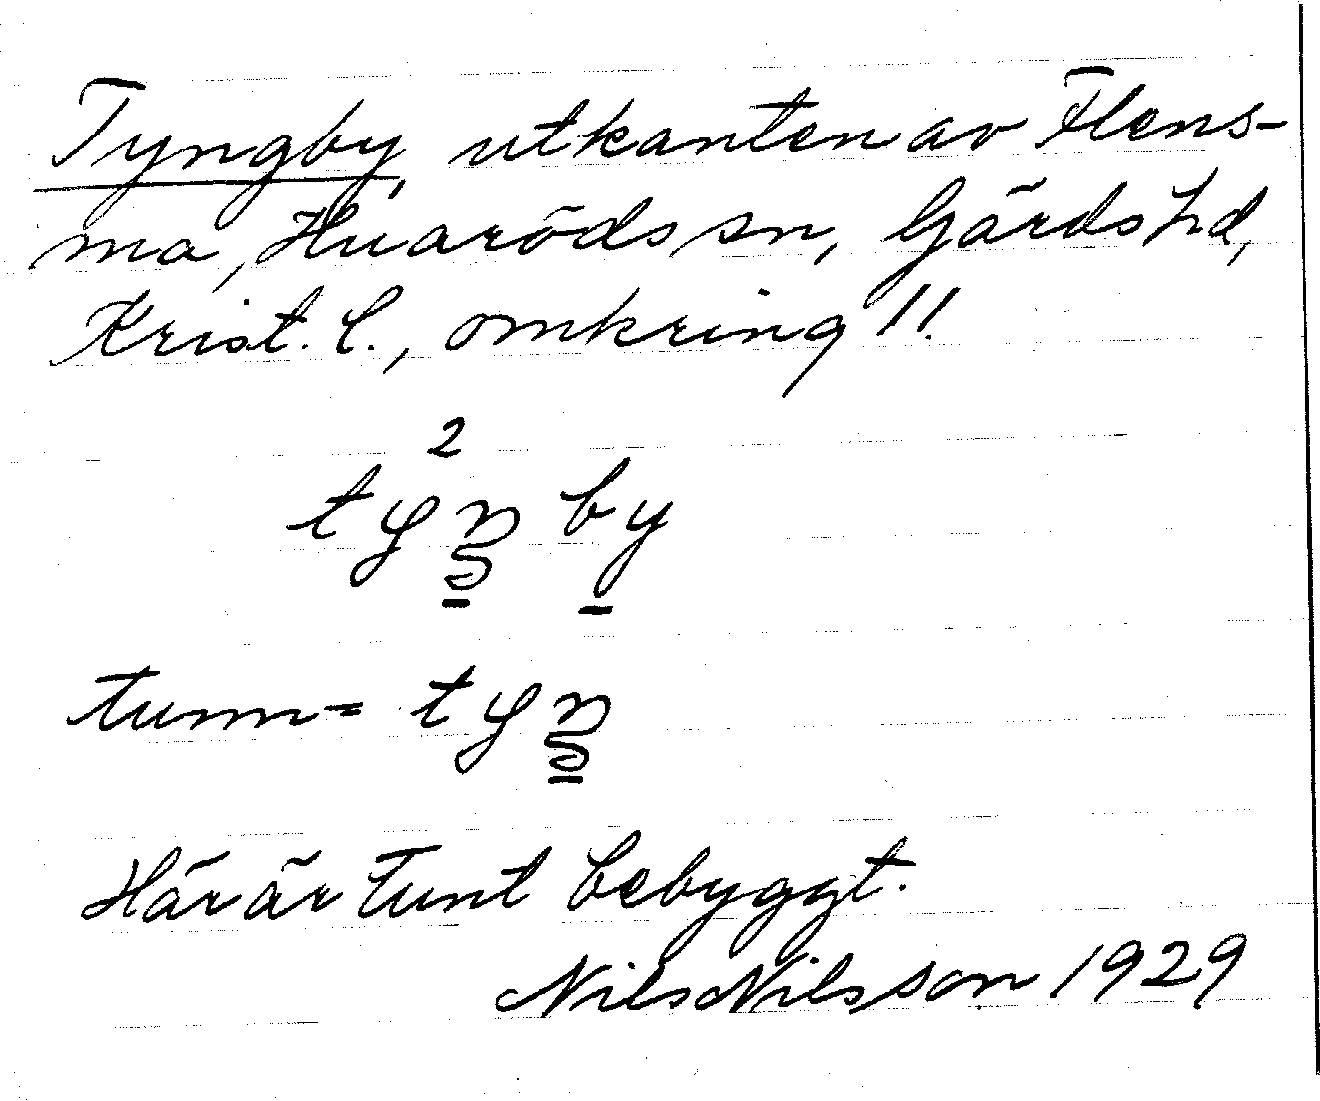 Tyngby, utkanten av Flens-
ma, Huaröds sn, Gärds hd,
Krist. l., omkring 11.
2
tyŋ by
tunn = tyŋ
Här är tunt bebyggt.
Nils Nilsson 1929